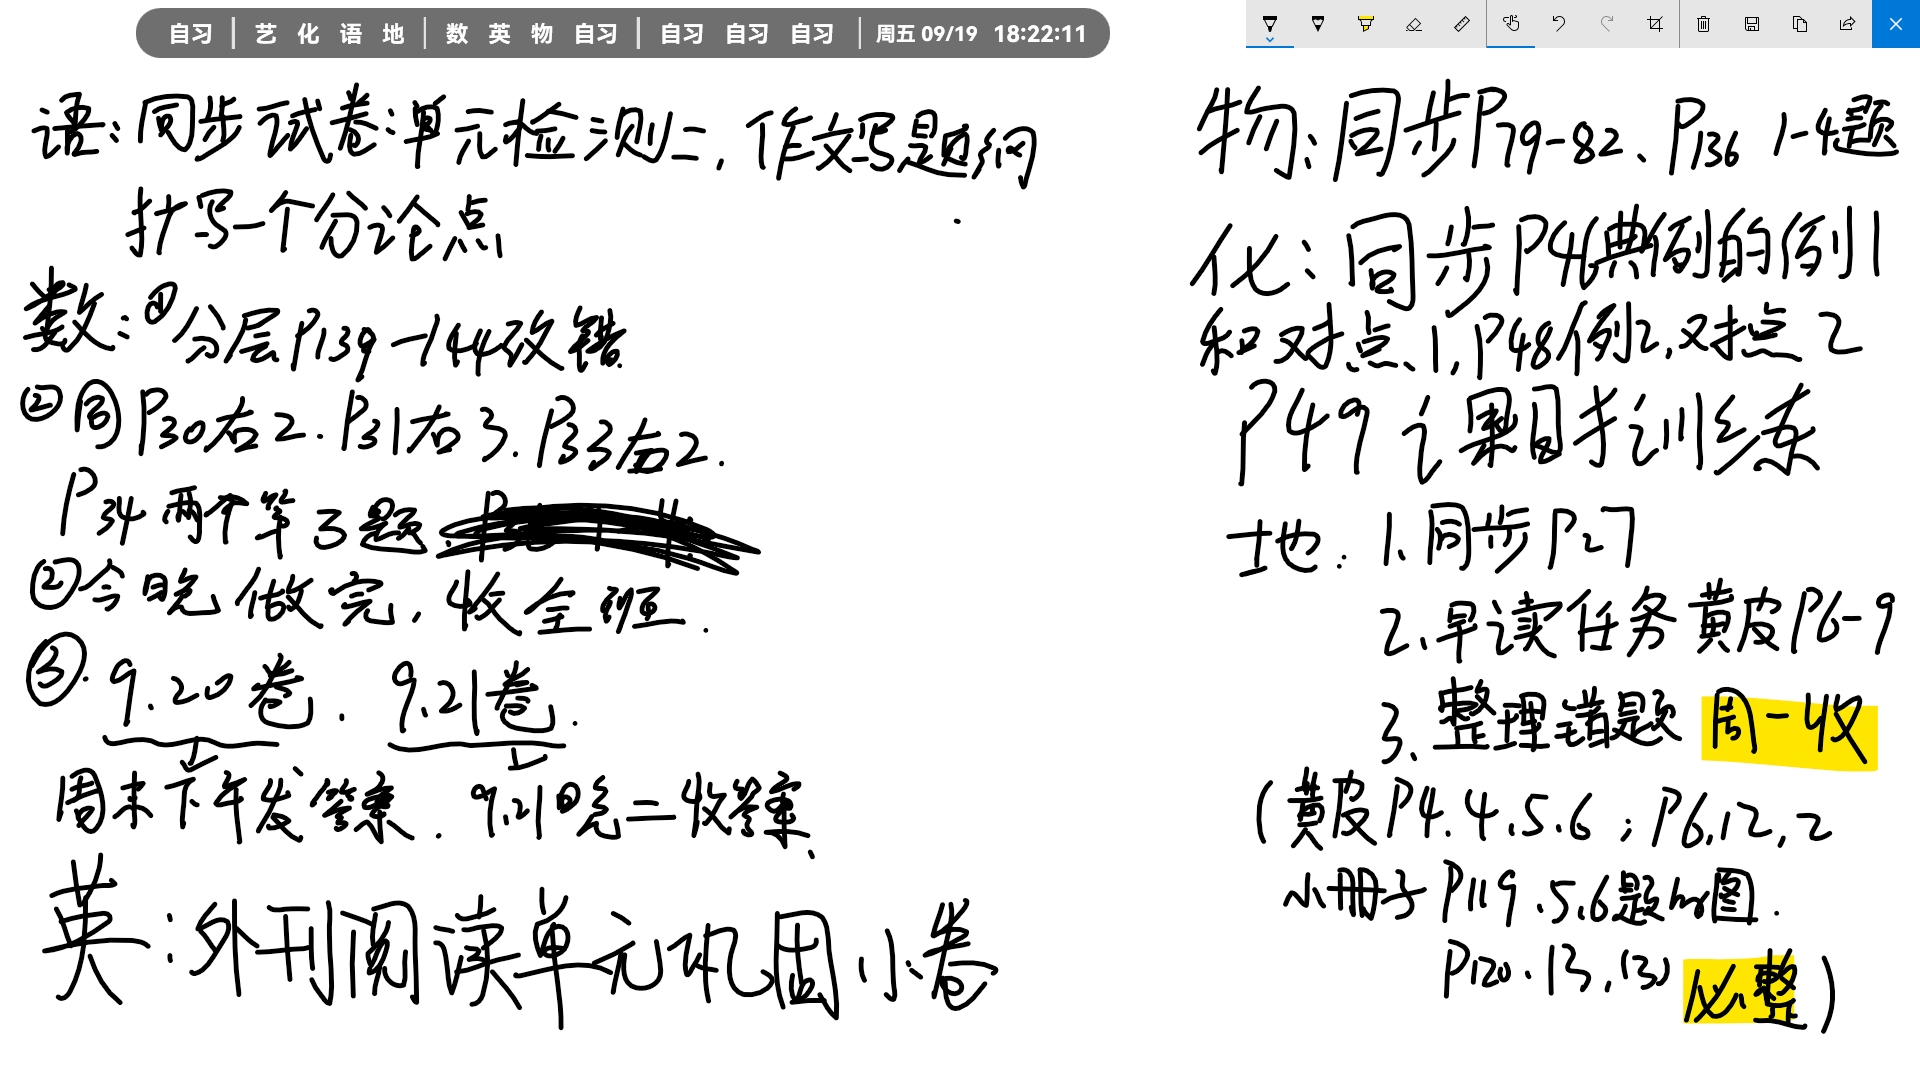 自习 | 艺 化 语 地 | 数 英 物 自习 | 自习 自习 自习 | 周五 09/19 18:22:11
语:同步试卷:单元检测二,作文写题纲
抄写一个分论点
数:①分层P139-144改错.
②同P30右2.P31右3.P33右2.
P34两个第3题.
②今日晚做完,收全班.
③.9.20卷.9.21卷.
周末下午发答案.9.21日晚二收答案.
英:外刊阅读单元巩固小卷
物:同步P79-82、P136 1-4题
化:同步P46典例的例1
和对点、1,P48例2,对点2
P49 课时训练
地:1.同步P27
2.早读任务黄皮P6-9
3.整理错题 周一收
(黄皮P4.4.5.6;P6.12,2
小册子P119.5.6题的图.
P120.13,(3) 必整)